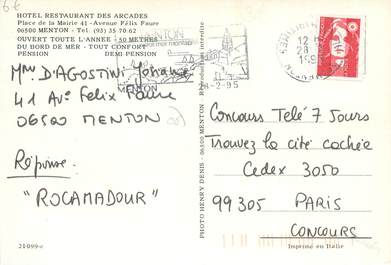 6€
HOTEL RESTAURANT DES ARCADES
Place de la Mairie 41 - Avenue Félix Faure
06500 MENTON - Tél (93) 35.70.62
OUVERT TOUTE L'ANNÉE - 50 MÈTRES
DU BORD DE MER - TOUT CONFORT
PENSION DEMI-PENSION
Mme D'AGOSTINI
41 Ave Felix Faure
06500 MENTON
Réponse
"ROCAMADOUR"
21-099-e
MENTON
MENTON
28-2-95
12 H
28
199
PHOTO HENRY DENIS - 06500 MENTON Reproduction interdite
Concours Télé 7 Jours
Trouvez la cité cachée
Cedex 3050
99305 PARIS
CONCOURS
Imprimé en Italie